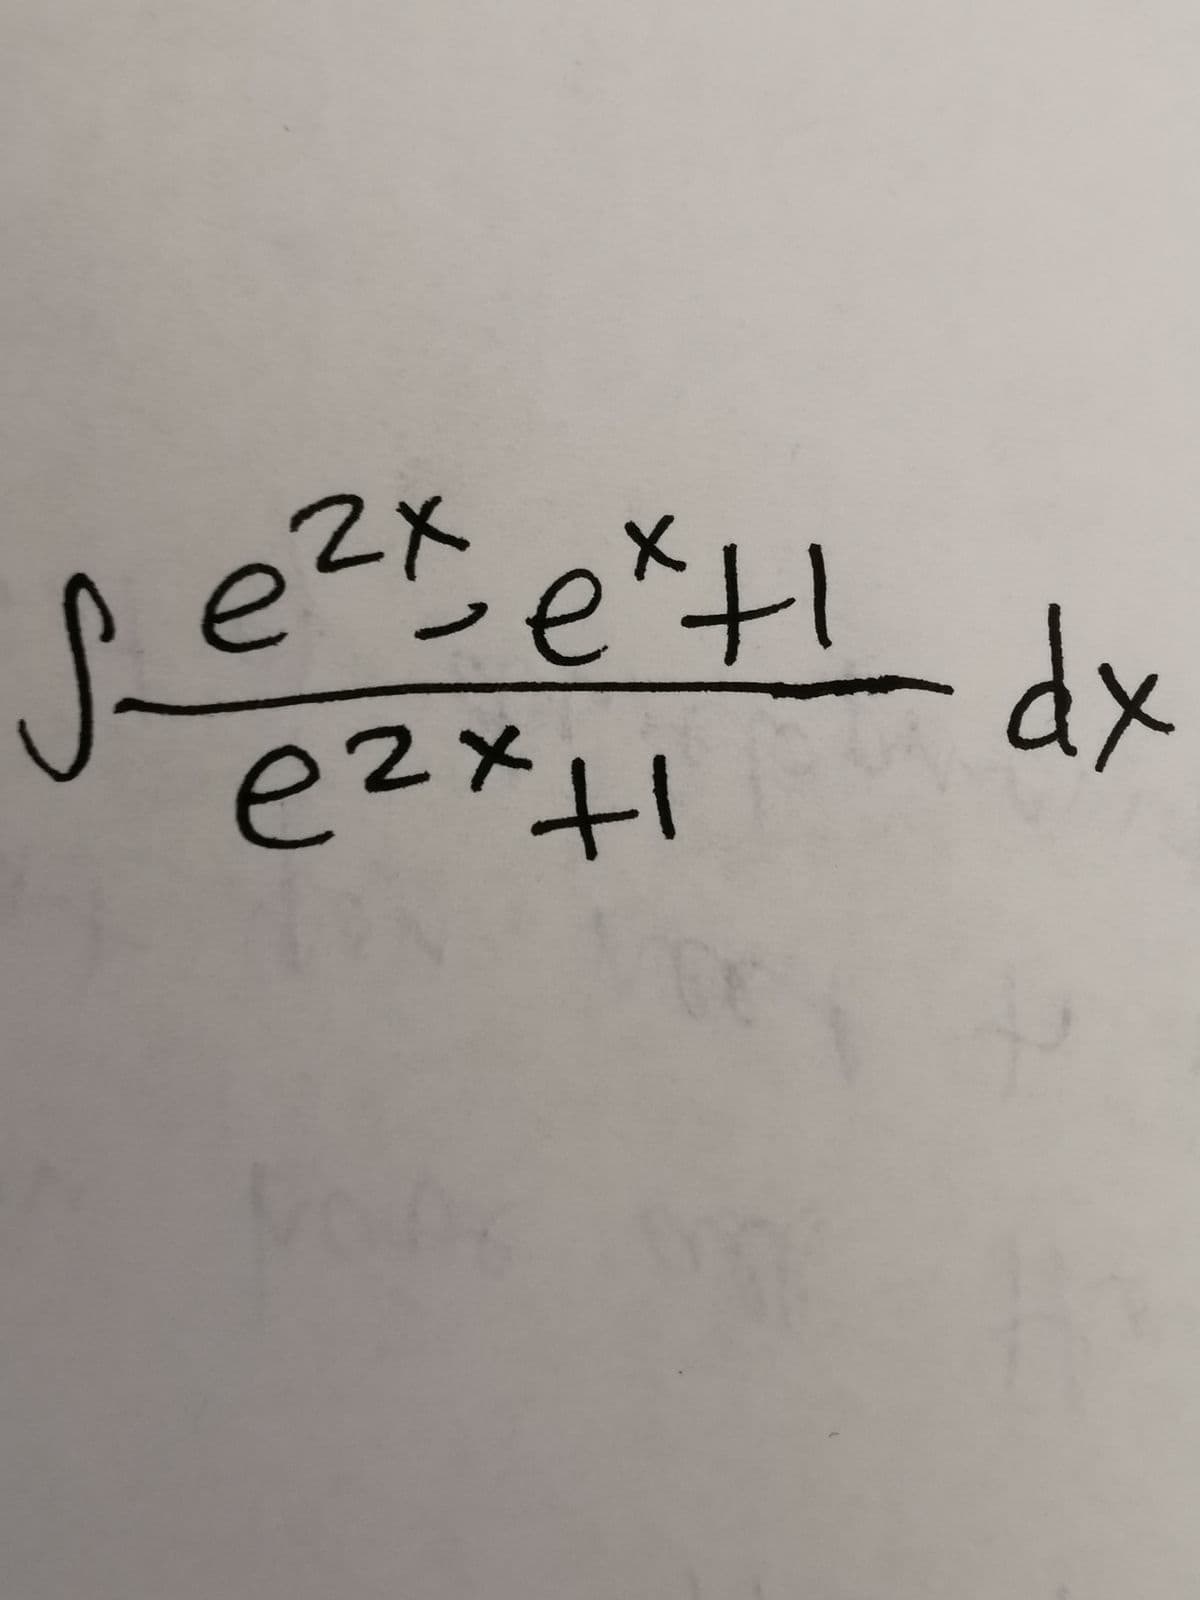 ∫ (e^{2x} - e^x + 1) / (e^{2x} + 1) dx